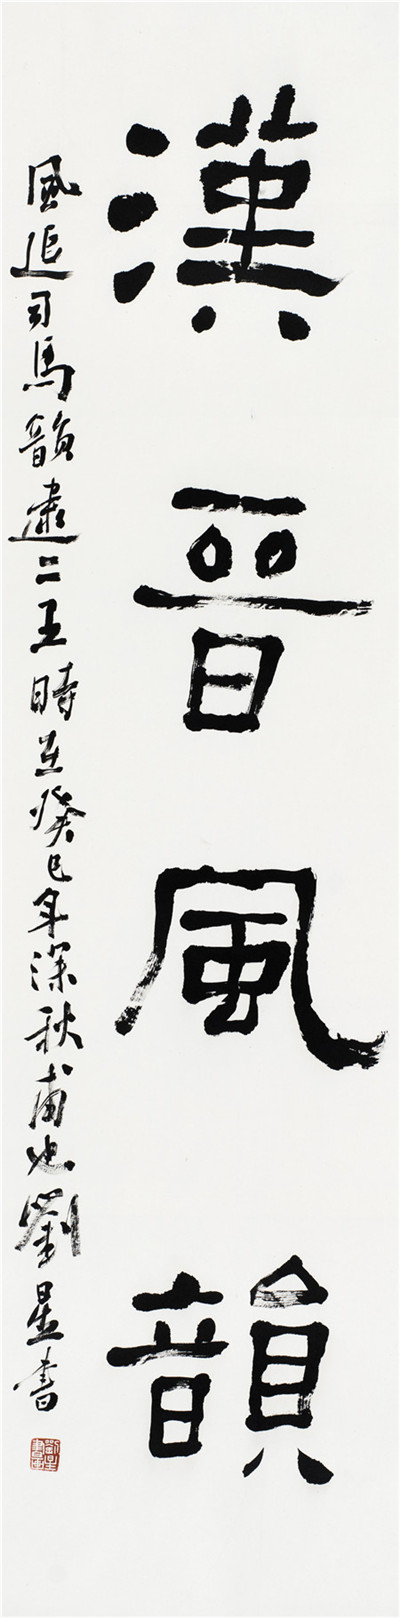 漢晉風韻
風追司馬韻建二王時在癸巳年深秋甫也劉星書